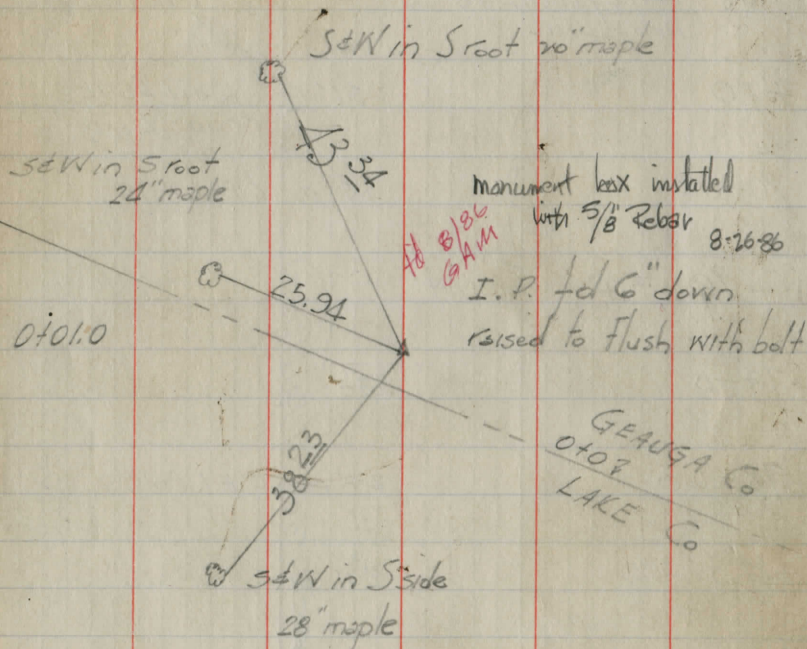 S&W in S root 20" maple
43.34
S&W in S root
24" maple
monument box installed
with 5/8" Rebar
8-26-86
fd 8/86
GAM
25.94
I.P. fd 6" down
raised to flush with bolt
0+01.0
GEAUGA Co
0+0?
LAKE Co
38.23
S&W in S side
28" maple